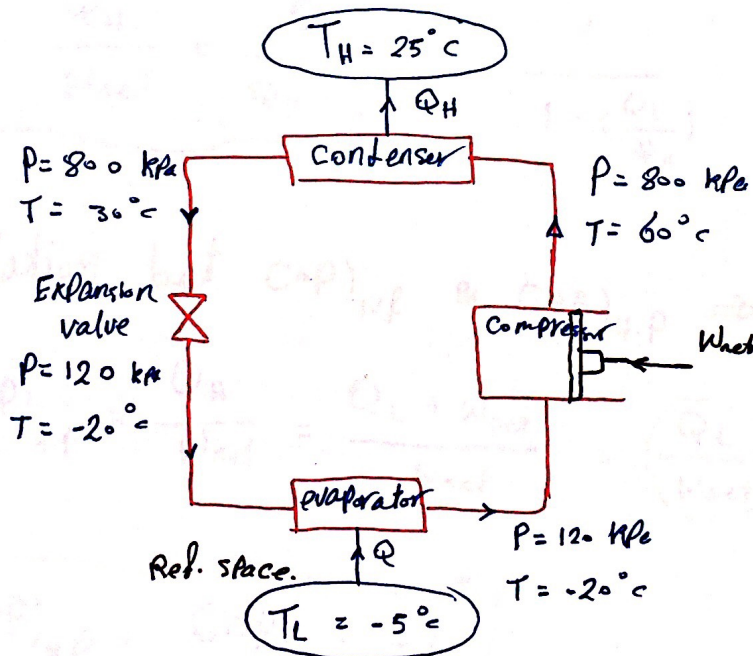 T_H = 25°C
Q_H
Condenser
P = 800 kPa
T = 30°C
P = 800 kPa
T = 60°C
Expansion
valve
compressor
Wnet
P = 120 kPa
T = -20°C
evaporator
P = 120 kPa
T = -20°C
Ref. space.
Q
T_L = -5°C